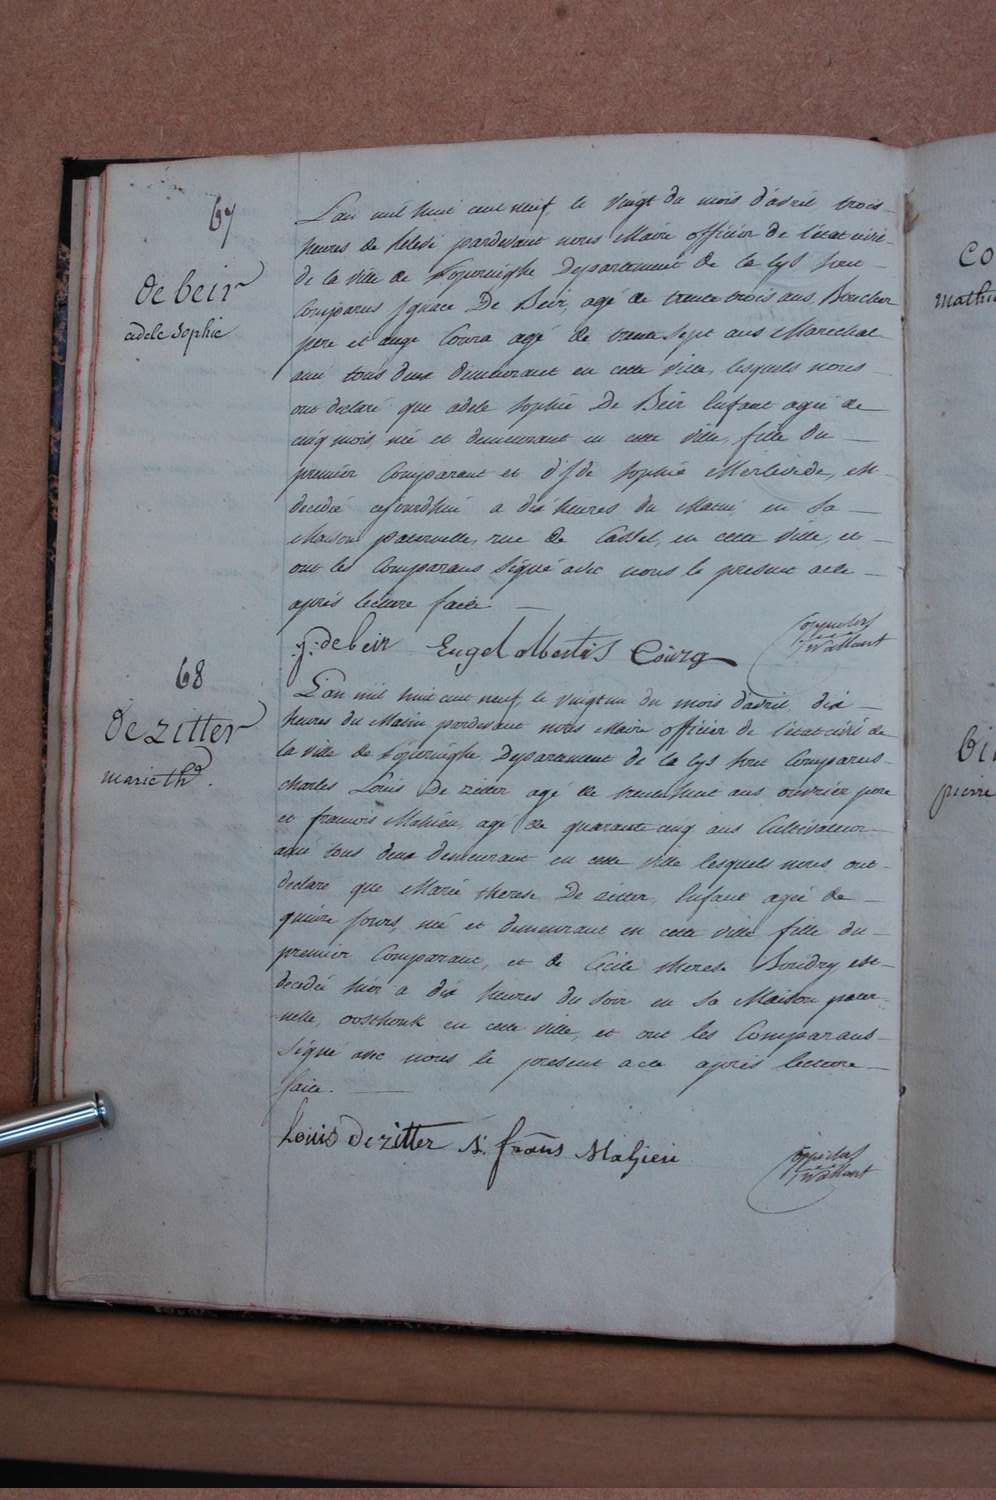 67
de beir
adele Sophie
L'an mil huit cent neuf, le vingt du mois d'avril trois
heures de relevé pardevant nous Maire officier de l'état civil
de la ville de Poperinghe Departement de la Lys sont
Comparus Ignace De Beir, agé de trente trois ans, Boucher
pere et ange Courg agé de trente sept ans Maréchal
ami tous deux demeurant en cette ville, lesquels nous
ont declaré que adele Sophie De Beir Enfant agée de
cinq mois, née et demeurant en cette ville, fille du
premier Comparant et d'Ide Sophie Merlevede, est
decedée aujourdhui a dix heures du Matin, en Sa
Maison paternelle, rue de Cassel, en cette ville, et
ont les Comparans Signé avec nous le present acte
après lecture faite.
J. debeir Engel albertus Courg
68
de zitter
marie th.
L'an mil huit cent neuf, le vingt un du mois d'avril, dix
heures du Matin pardevant nous Maire officier de l'état civil de
la ville de Poperinghe Departement de la Lys sont Comparus
charles Louis De zitter agé de trente huit ans ouvrier pere
et francois Mahieu, agé de quarante cinq ans Cultivateur
ami tous deux demeurant en cette ville lesquels nous ont
declaré que Marie therese De zitter, Enfant agée de
quinze jours, née et demeurant en cette ville fille du
premier Comparant, et de Cécile therese Boudry est
decedée hier a dix heures du soir en Sa Maison pater
nelle, oosthouk en cette ville, et ont les Comparans
Signé avec nous le present acte après lecture
faite.
Louis De zitter frans Mahieu
co
mathie
bi
pierre